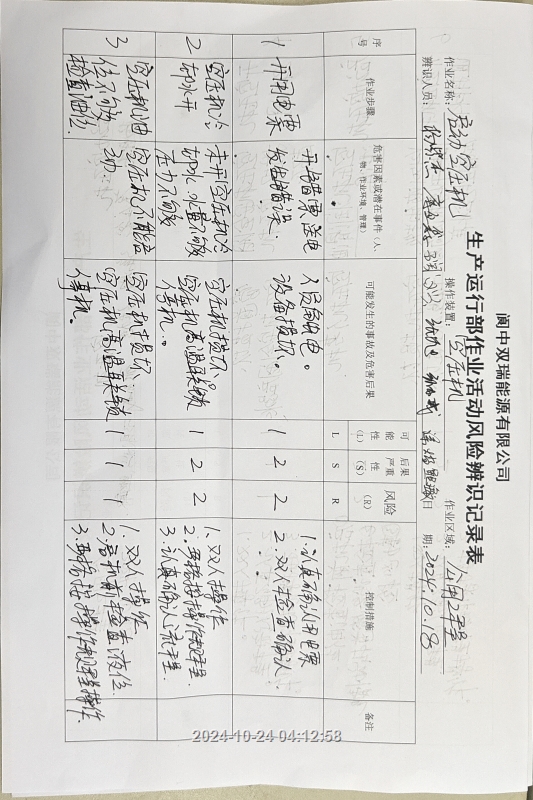 阆中双瑞能源有限公司
生产运行部作业活动风险辨识记录表
作业名称：启动空压机 操作装置：空压机 作业区域：公用工程
辨识人员： 日期：2024.10.18
序号 作业步骤 危害因素或潜在事件（人、物、作业环境、管理） 可能发生的事故及危害后果 可能性（L） 后果严重性（S） 风险（R） 控制措施 备注
L S R
1 开用电票 开错票送电发生错误. 人员触电。设备损坏。 1 2 2 1.认真确认用电票
2.双人检查确认.
2 空压机冷却水开 未开空压机冷却水，水量不够压力不够 空压机损坏 空压机高温联锁停机。 1 2 2 1.双人操作
2.严格按操作规程.
3.认真确认流程.
3 空压机油位不够 检查油位. 空压机不能启动. 空压机损坏. 空压机高温联锁停机. 1 1 1 1.双人操作
2.启机前检查液位.
3.严格按操作规程操作.
2024-10-24 04:12:58